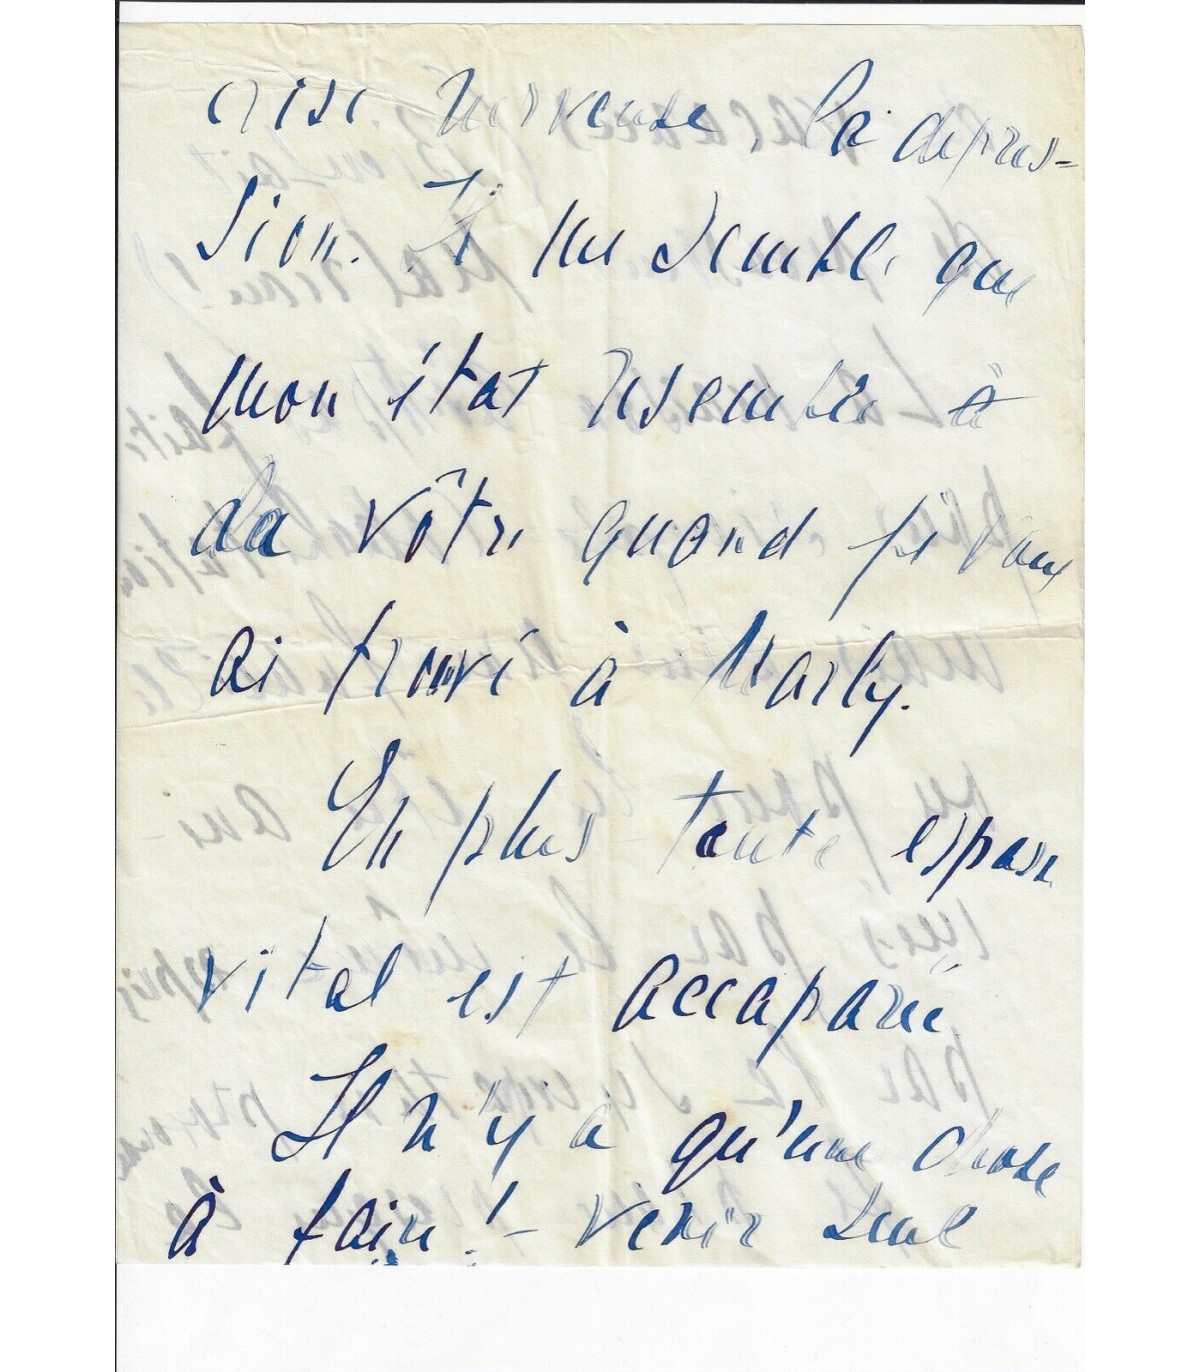 crise nerveuse la dépres-
sion. Il me semble que
mon état resemble à
la vôtre quand je vous
ai trouvé à Marly.
En plus toute espase
vital est accaparé
Il n'y a qu'une chose
à faire! - venir seul